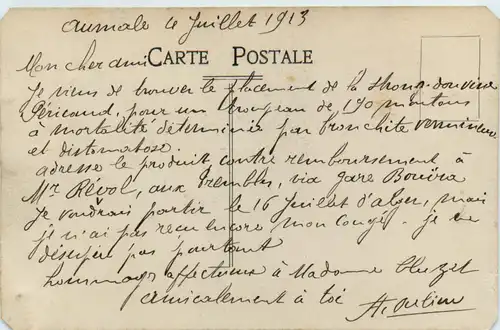 Aumale le Juillet 1913
Mon cher ami
CARTE POSTALE
Je viens de trouver le placement de la
Péricaud, pour un troupeau de 190 moutons
à mortalité déterminée par bronchite vermineuse
et distomatose.
adresse le produit contre remboursement à
Mr Révol, aux trembles, via gare Bouira
Je voudrais partir le 16 Juillet d'alger, mais
je n'ai pas reçu encore mon congé. je ne
désespère pas pourtant
hommages affectueux à Madame
amicalement à toi